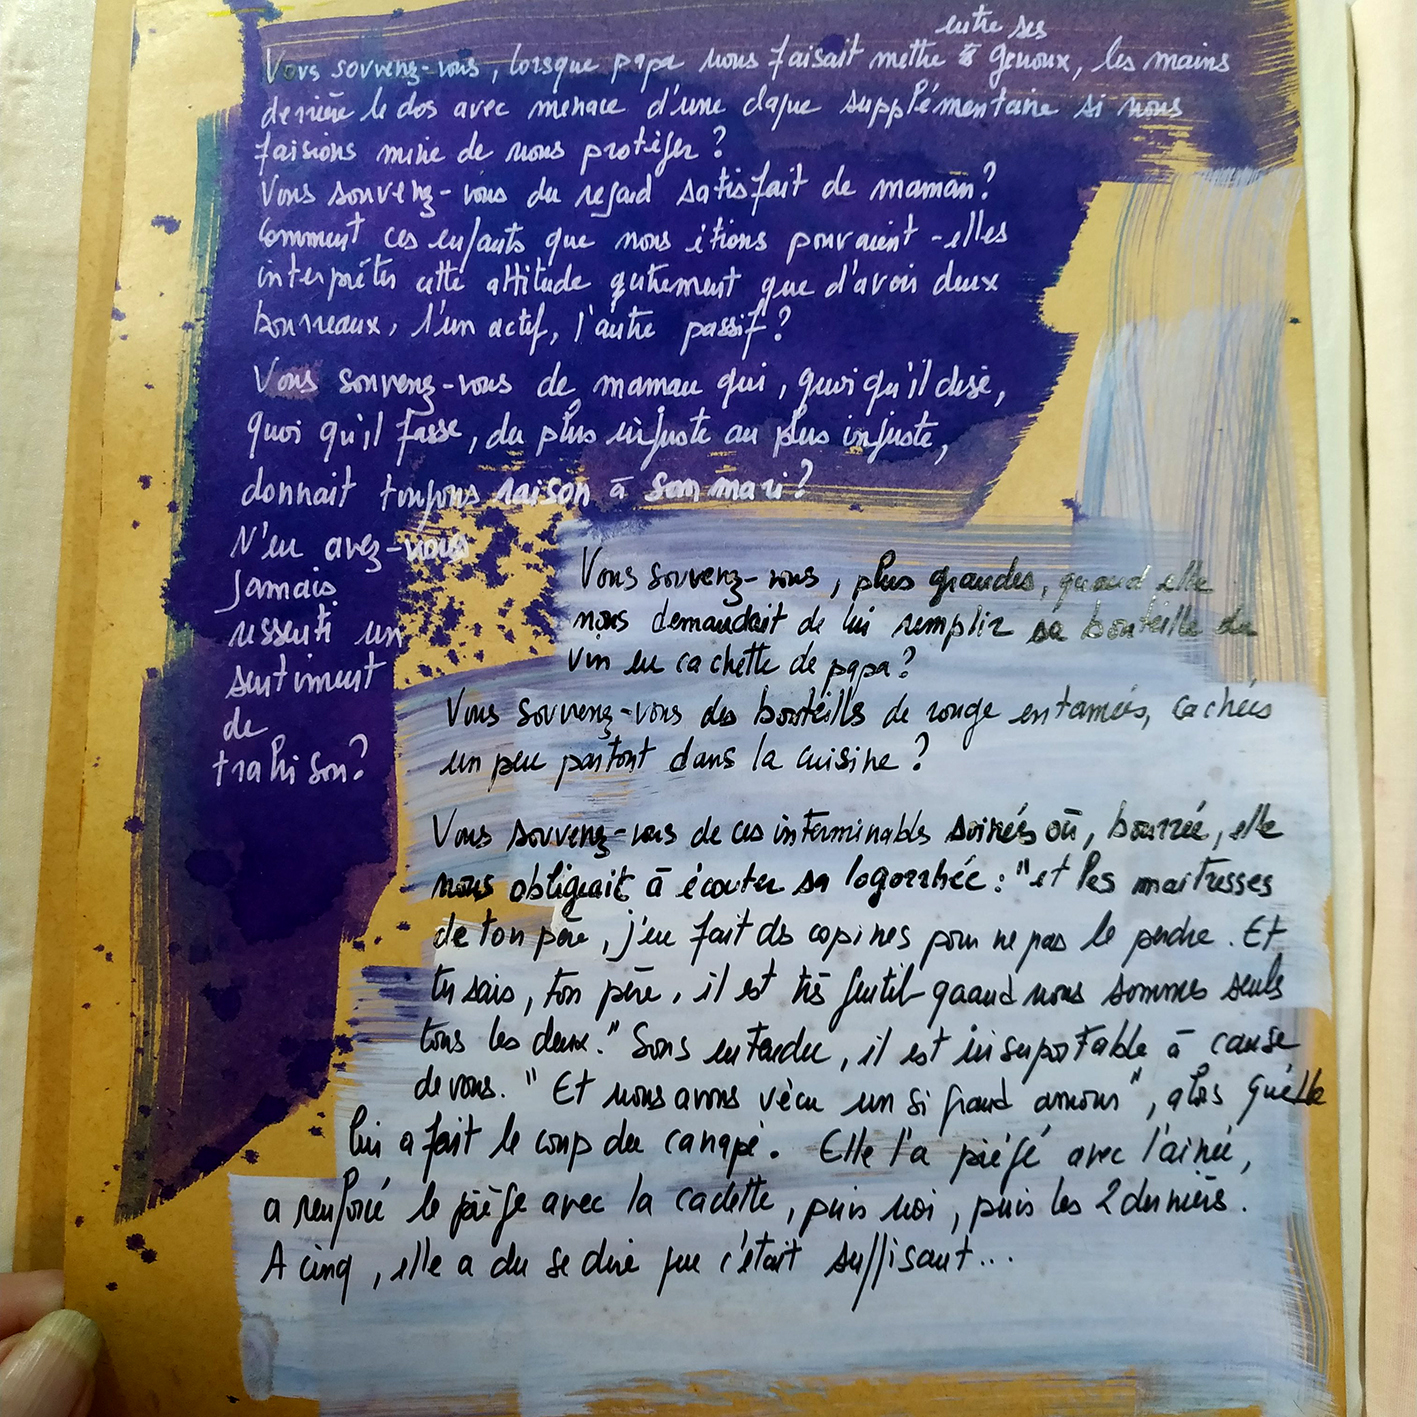 entre ses
Vous souvenez-vous, lorsque papa nous faisait mettre genoux, les mains
derrière le dos avec menace d'une claque supplémentaire si nous
faisions mine de nous protéger ?
Vous souvenez-vous du regard satisfait de maman ?
Comment ces enfants que nous étions pouvaient-elles
interpréter cette attitude autrement que d'avoir deux
bourreaux, l'un actif, l'autre passif ?
Vous souvenez-vous de maman qui, quoi qu'il dise,
quoi qu'il fasse, du plus injuste au plus injuste,
donnait toujours raison à son mari ?
N'en avez-vous
Jamais
ressenti un
sentiment
de
trahison ?
Vous souvenez-vous, plus grandes, quand elle
nous demandait de lui remplir sa bouteille de
vin en cachette de papa ?
Vous souvenez-vous des bouteilles de rouge entamées, cachées
un peu partout dans la cuisine ?
Vous souvenez-vous de ces interminables soirées où, bourrée, elle
nous obligeait à écouter sa logorrhée : "et les maitresses
de ton père, j'en fait des copines pour ne pas le perdre. Et
tu sais, ton père, il est très gentil quand nous sommes seuls
tous les deux." Sous entendu, il est insuportable à cause
de vous. "Et nous avons vécu un si grand amour", alors qu'elle
lui a fait le coup du canapé. Elle l'a piégé avec l'ainée,
a renforcé le piège avec la cadette, puis moi, puis les 2 dernières.
A cinq, elle a du se dire que c'était suffisant...